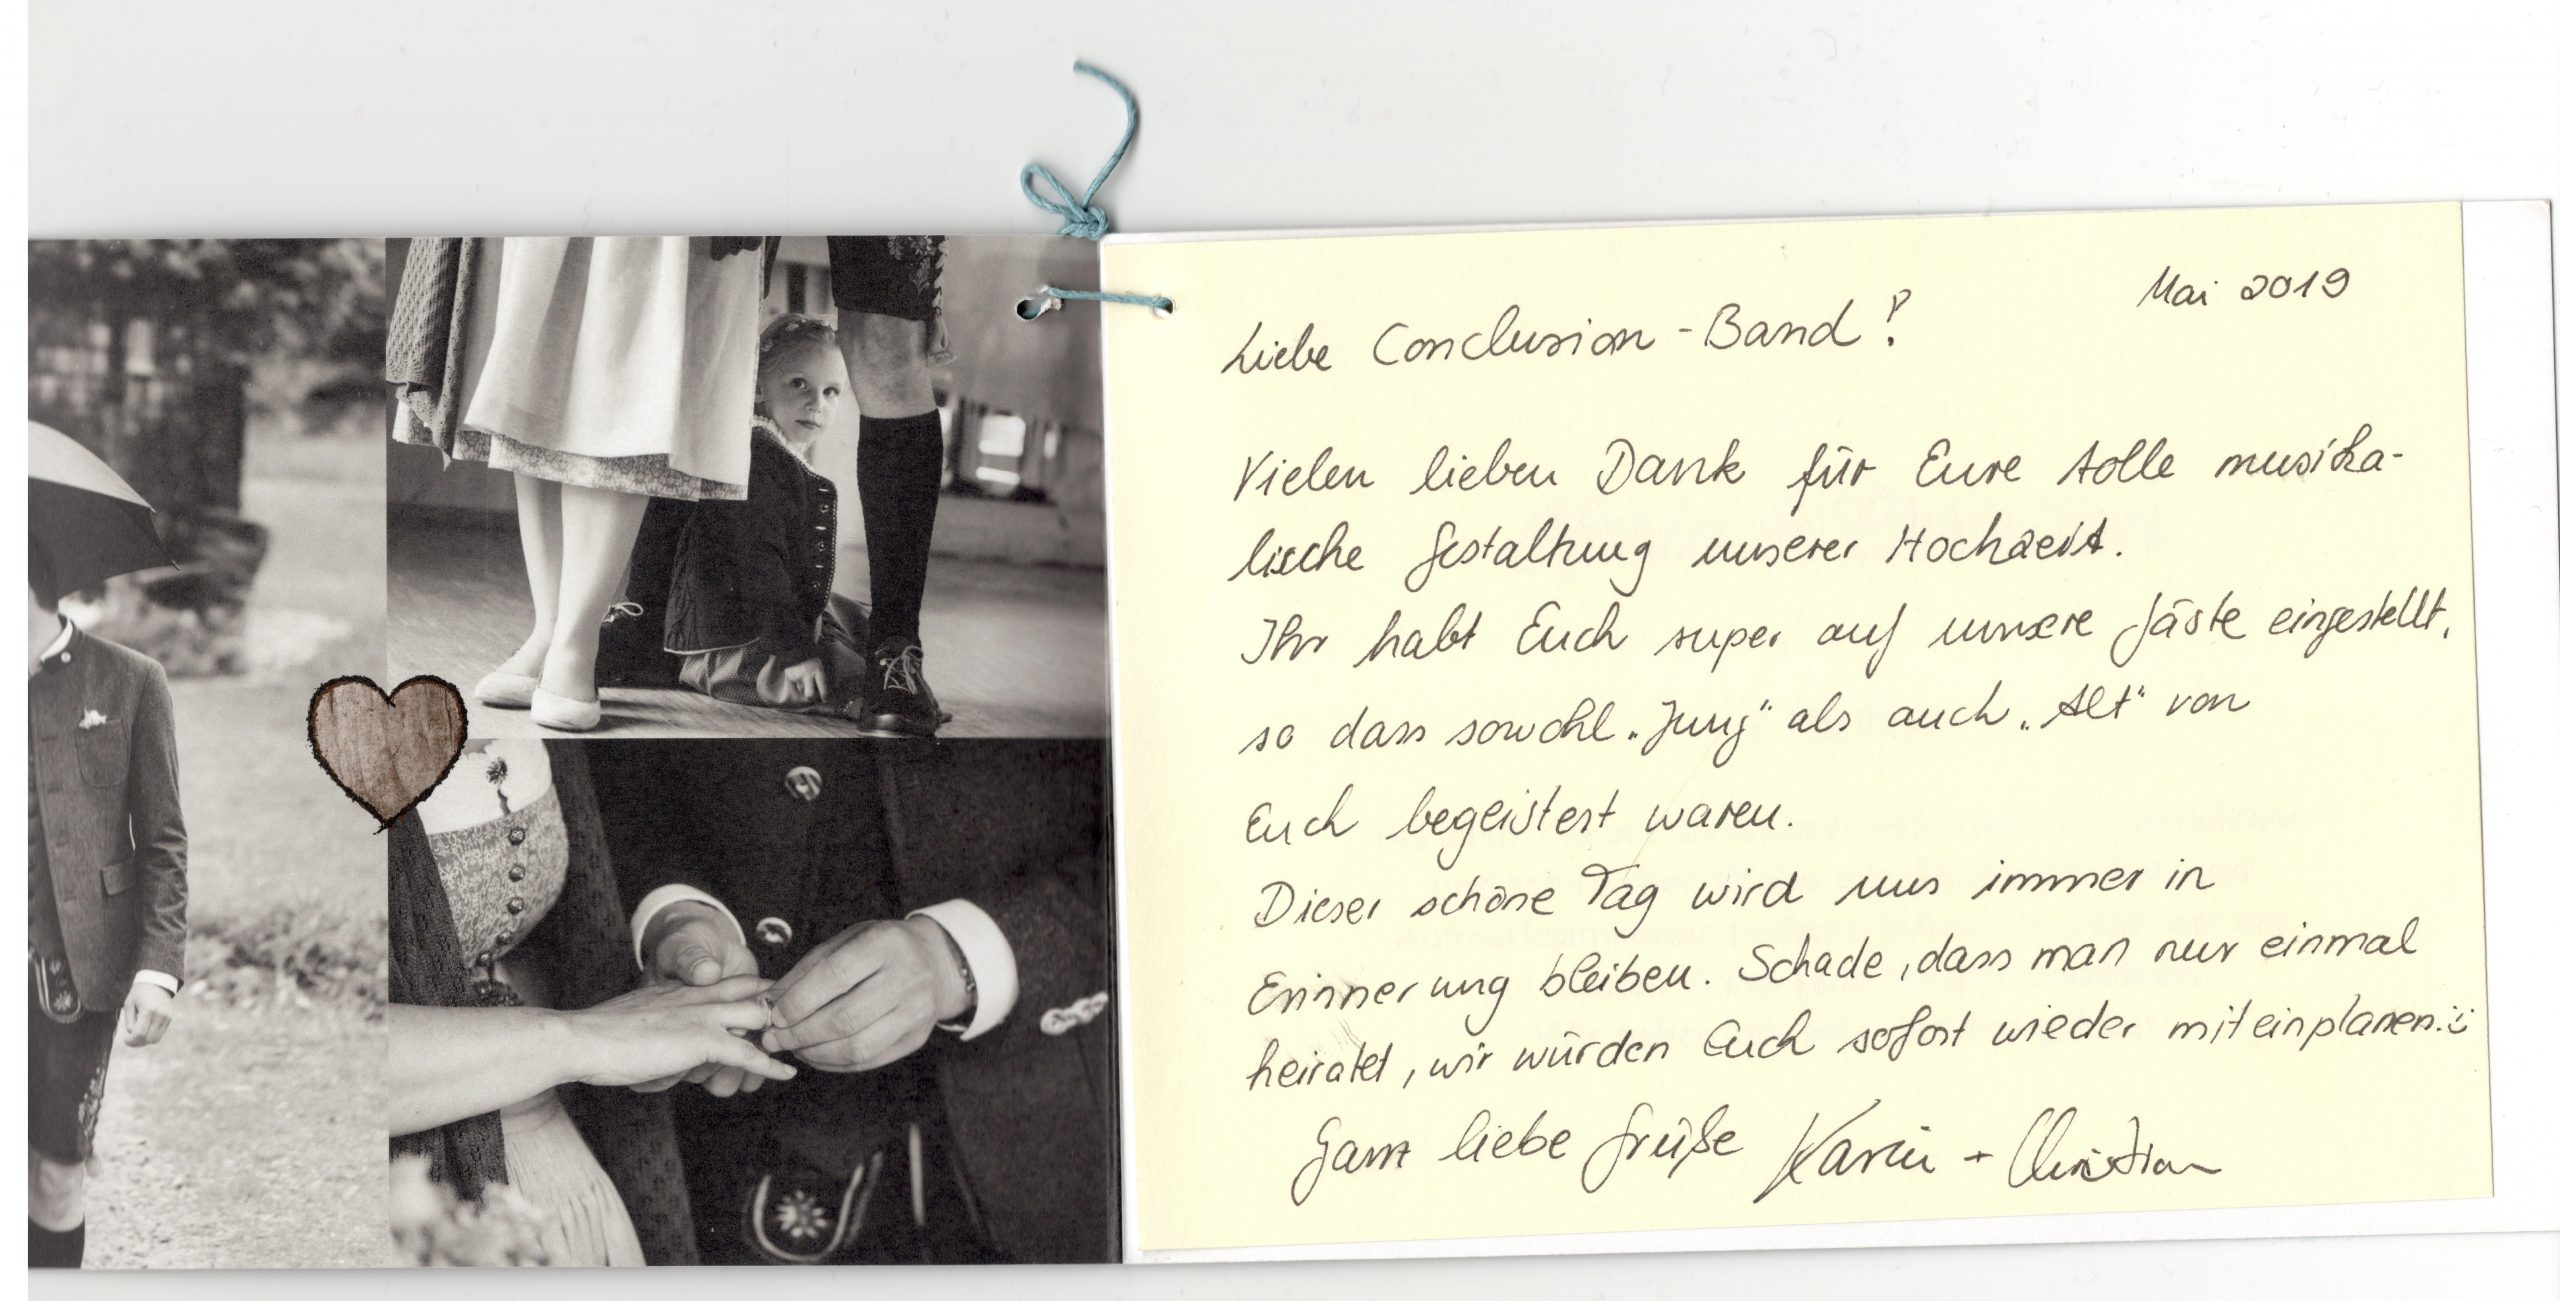 Mai 2019
Liebe Conclusion-Band!
Vielen lieben Dank für Eure tolle musika-
lische Gestaltung unserer Hochzeit.
Ihr habt Euch super auf unsere Gäste eingestellt,
so dass sowohl „Jung" als auch „Alt" von
Euch begeistert waren.
Dieser schöne Tag wird uns immer in
Erinnerung bleiben. Schade, dass man nur einmal
heiratet, wir würden Euch sofort wieder miteinplanen. :)
Ganz liebe Grüße Karin + Christian